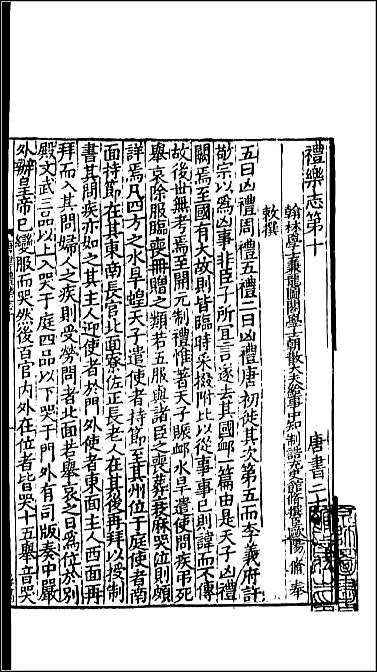 禮樂志第十　唐書二十
翰林學士兼龍圖閣學士朝散大夫給事中知制誥充史館脩撰臣歐陽脩奉
敕撰
五曰凶禮周禮五禮二曰凶禮唐初徙其次第五而李義府許
敬宗以爲凶事非臣子所宜言遂去其國邺一篇由是天子凶禮
闕焉至國有大故則皆臨時采掇附比以從事事已則諱而不傳
故後世無考焉至開元制禮惟著天子賑邺水旱遣使問疾弔死
舉哀除服臨喪冊贈之類若五服與諸臣之喪葬衰麻哭泣則頗
詳焉凡四方之水旱蝗天子遣使者持節至其州位于庭使者南
面持節在其東南長官北面寮佐正長老人在其後再拜以授制
書其問疾亦如之其主人迎使者於門外使者東面主人西面再
拜而入其問婦人之疾則受勞問者北面若舉哀之日爲位於別
殿文武三品以上入哭于庭四品以下哭于門外有司版奏中嚴
外辦皇帝已變服而哭然後百官内外在位者皆哭十五舉音哭